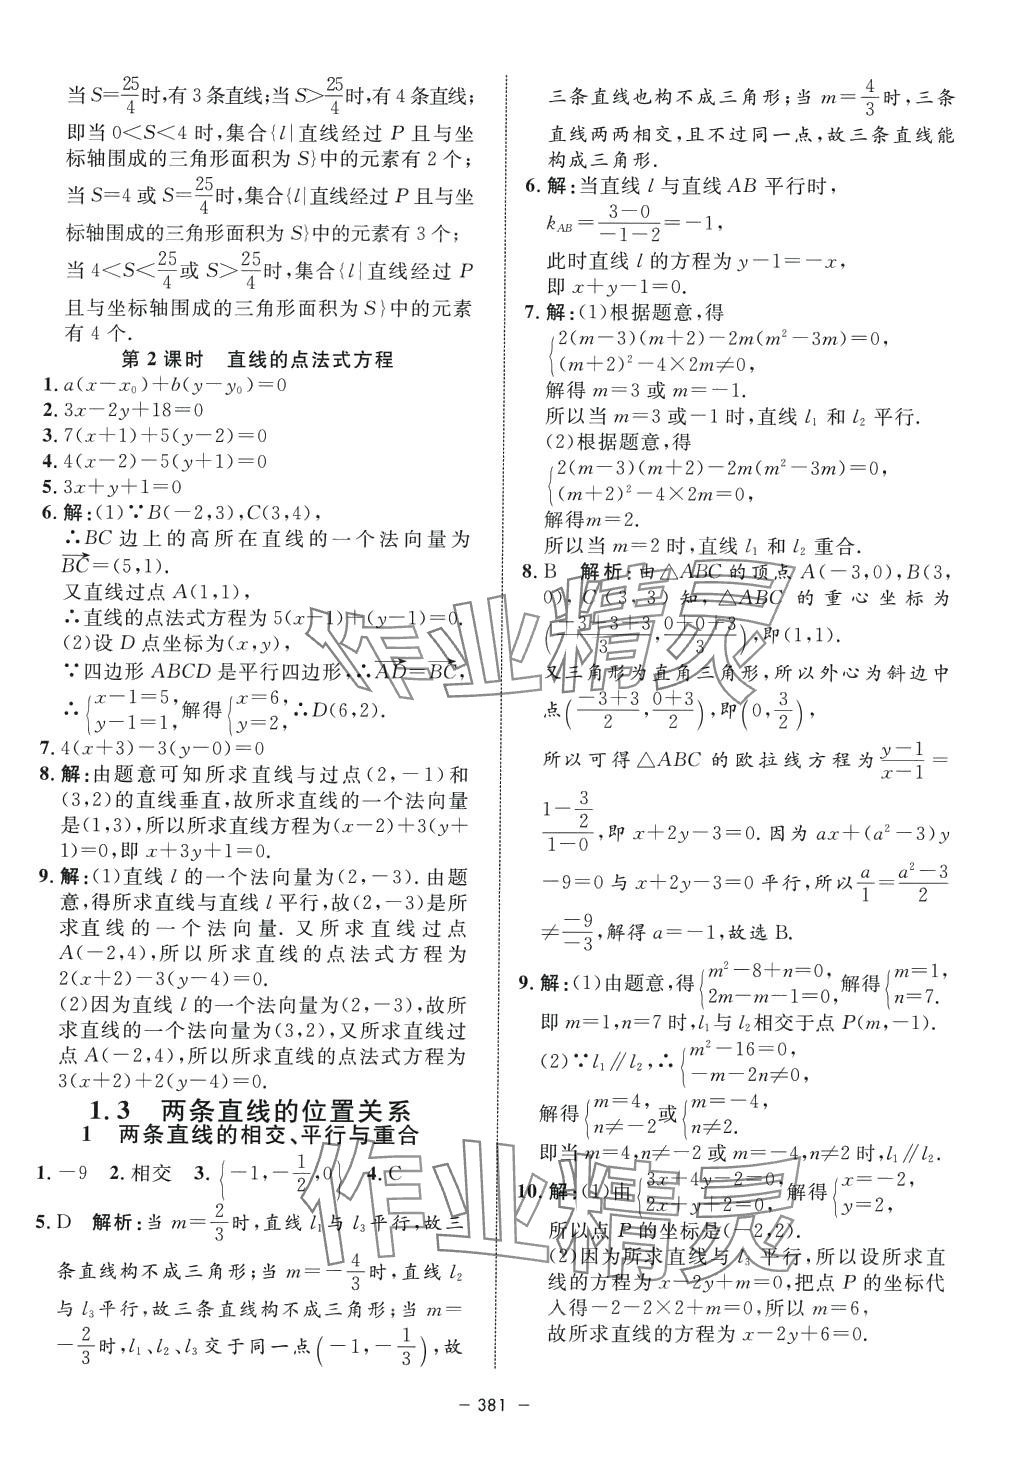 当 S=25/4时,有 3 条直线;当 S>25/4时,有 4 条直线;
即当 0<S<4 时,集合{l|直线经过 P 且与坐
标轴围成的三角形面积为 S}中的元素有 2 个;
当 S=4 或 S=25/4时,集合{l|直线经过 P 且与
坐标轴围成的三角形面积为 S}中的元素有 3 个;
当 4<S<25/4或 S>25/4时,集合{l|直线经过 P
且与坐标轴围成的三角形面积为 S}中的元素
有 4 个.
第 2 课时 直线的点法式方程
1. a(x-x₀)+b(y-y₀)=0
2. 3x-2y+18=0
3. 7(x+1)+5(y-2)=0
4. 4(x-2)-5(y+1)=0
5. 3x+y+1=0
6. 解:(1)∵B(-2,3),C(3,4),
∴BC 边上的高所在直线的一个法向量为
BC→=(5,1).
又直线过点 A(1,1),
∴直线的点法式方程为 5(x-1)+(y-1)=0.
(2)设 D 点坐标为(x,y),
∵四边形 ABCD 是平行四边形,∴AD→=BC→,
∴{x-1=5, y-1=1,解得{x=6, y=2,∴D(6,2).
7. 4(x+3)-3(y-0)=0
8. 解:由题意可知所求直线与过点(2,-1)和
(3,2)的直线垂直,故所求直线的一个法向量
是(1,3),所以所求直线方程为(x-2)+3(y+
1)=0,即 x+3y+1=0.
9. 解:(1)直线 l 的一个法向量为(2,-3).由题
意,得所求直线与直线 l 平行,故(2,-3)是所
求直线的一个法向量.又所求直线过点
A(-2,4),所以所求直线的点法式方程为
2(x+2)-3(y-4)=0.
(2)因为直线 l 的一个法向量为(2,-3),故所
求直线的一个法向量为(3,2),又所求直线过
点 A(-2,4),所以所求直线的点法式方程为
3(x+2)+2(y-4)=0.
1.3 两条直线的位置关系
1 两条直线的相交、平行与重合
1. -9 2. 相交 3. {-1,-1/2,0} 4. C
5. D 解析:当 m=2/3时,直线 l₁与 l₃平行,故三
条直线构不成三角形;当 m=-4/3时,直线 l₂
与 l₃平行,故三条直线构不成三角形;当 m=
-2/3时,l₁、l₂、l₃交于同一点(-1,-1/3),故
三条直线也构不成三角形;当 m=4/3时,三条
直线两两相交,且不过同一点,故三条直线能
构成三角形.
6. 解:当直线 l 与直线 AB 平行时,
k_AB=(3-0)/(-1-2)=-1,
此时直线 l 的方程为 y-1=-x,
即 x+y-1=0.
7. 解:(1)根据题意,得
{2(m-3)(m+2)-2m(m²-3m)=0,
(m+2)²-4×2m≠0,
解得 m=3 或 m=-1.
所以当 m=3 或-1 时,直线 l₁ 和 l₂ 平行.
(2)根据题意,得
{2(m-3)(m+2)-2m(m²-3m)=0,
(m+2)²-4×2m=0,
解得m=2.
所以当 m=2 时,直线 l₁ 和 l₂ 重合.
8. B 解析:由△ABC 的顶点 A(-3,0),B(3,
0),C(3,3)知,△ABC 的重心坐标为
((-3+3+3)/3,(0+0+3)/3),即(1,1).
又三角形为直角三角形,所以外心为斜边中
点((-3+3)/2,(0+3)/2),即(0,3/2),
所以可得△ABC 的欧拉线方程为(y-1)/(x-1)=
(1-3/2)/(1-0),即 x+2y-3=0.因为 ax+(a²-3)y
-9=0 与 x+2y-3=0 平行,所以a/1=(a²-3)/2
≠-9/-3,解得 a=-1,故选 B.
9. 解:(1)由题意,得{m²-8+n=0, 2m-m-1=0,解得{m=1, n=7.
即 m=1,n=7 时,l₁与 l₂相交于点 P(m,-1).
(2)∵l₁∥l₂,∴{m²-16=0, -m-2n≠0,
解得{m=4, n≠-2或{m=-4, n≠2,
即当 m=4,n≠-2 或 m=-4,n≠2 时,l₁∥l₂.
10. 解:(1)由{3x+4y-2=0, 2x+y+2=0,解得{x=-2, y=2,
所以点 P 的坐标是(-2,2).
(2)因为所求直线与 l₃ 平行,所以设所求直
线的方程为 x-2y+m=0,把点 P 的坐标代
入得-2-2×2+m=0,所以 m=6,
故所求直线的方程为 x-2y+6=0.
- 381 -
作业精灵
作业精灵